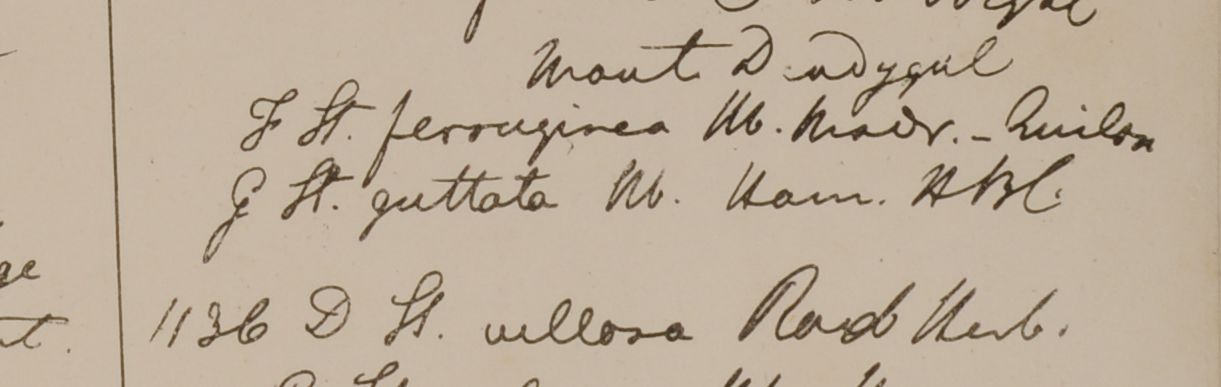 Mont. Dindygul
F St. ferruginea Hb. Madr. - Quilon
G St. guttata Hb. Ham. HBC.
ge
1136 D St. villosa Roxb Herb.
t.